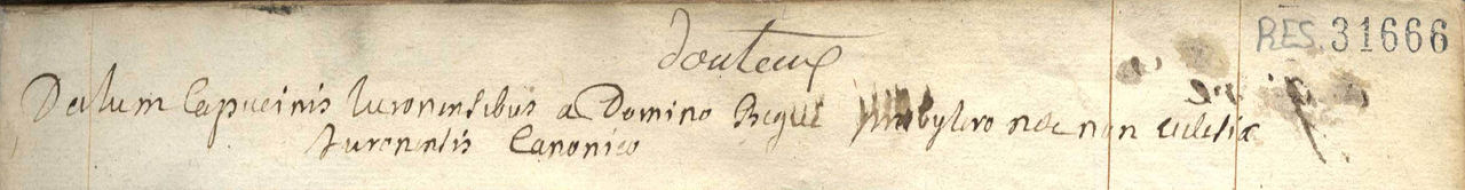 RES. 31666
douteux
Datum Capucinis Turonensibus a Domino Begui presbytero nec non ecclesiæ
Turonensis Canonico